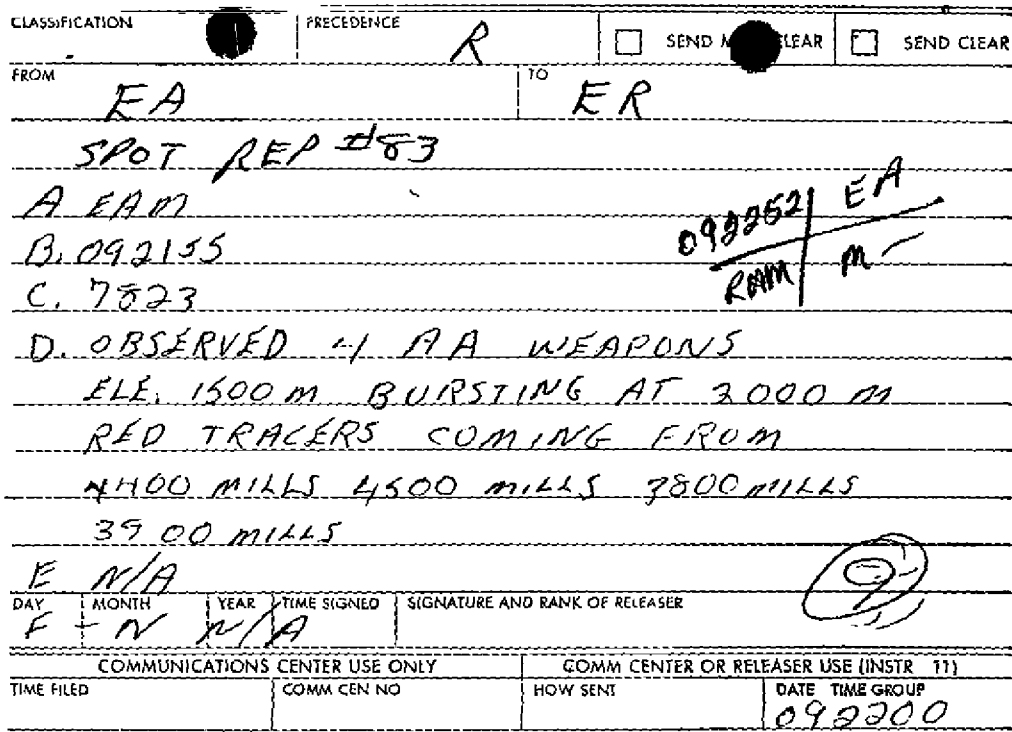 CLASSIFICATION PRECEDENCE R SEND CLEAR SEND CLEAR
FROM EA TO ER
SPOT REP #83
A EAM
B. 092155
C. 7823
092252 EA
RMM M
D. OBSERVED 4 AA WEAPONS
ELE. 1500 M BURSTING AT 2000 M
RED TRACERS COMING FROM
4400 MILLS 4500 MILLS 3800 MILLS
3900 MILLS
E N/A
DAY MONTH YEAR TIME SIGNED SIGNATURE AND RANK OF RELEASER
F - N N/A
COMMUNICATIONS CENTER USE ONLY COMM CENTER OR RELEASER USE (INSTR 11)
TIME FILED COMM CEN NO HOW SENT DATE TIME GROUP
092200